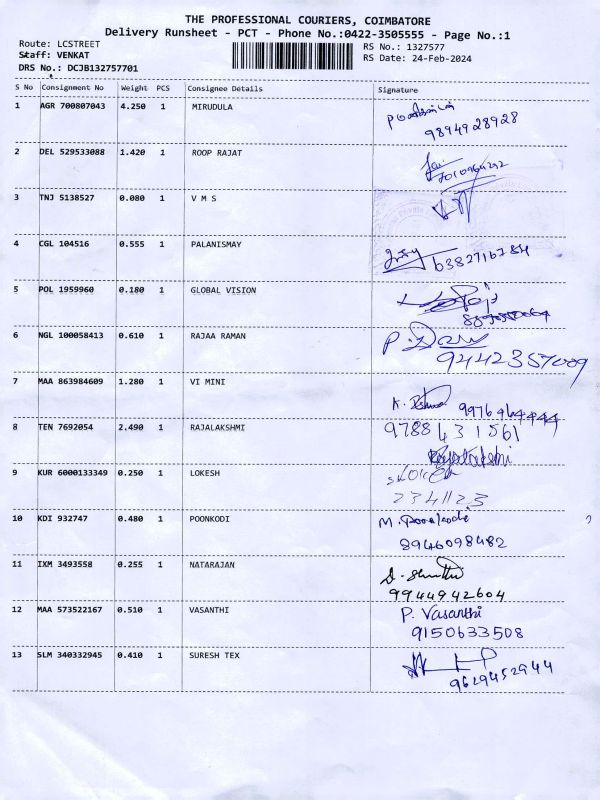 THE PROFESSIONAL COURIERS, COIMBATORE
Delivery Runsheet - PCT - Phone No.:0422-3505555 - Page No.:1
Route: LCSTREET
RS No.: 1327577
Staff: VENKAT
RS Date: 24-Feb-2024
DRS No.: DCJB132757701
S No Consignment No Weight PCS Consignee Details Signature
1 AGR 700807043 4.250 1 MIRUDULA
9894928928
2 DEL 529533088 1.420 1 ROOP RAJAT
3 TNJ 5138527 0.080 1 V M S
4 CGL 104516 0.555 1 PALANISMAY
6382716784
5 POL 1959960 0.180 1 GLOBAL VISION
6 NGL 100058413 0.610 1 RAJAA RAMAN
9442357009
7 MAA 863984609 1.280 1 VI MINI
9976464444
8 TEN 7692054 2.490 1 RAJALAKSHMI
9788431561
Rajalakshmi
9 KUR 6000133349 0.250 1 LOKESH
2341123
10 KDI 932747 0.480 1 POONKODI
M. Poonkodi
8946098482
11 IXM 3493558 0.255 1 NATARAJAN
9944942604
12 MAA 573522167 0.510 1 VASANTHI
P. Vasanthi
9150633508
13 SLM 340332945 0.410 1 SURESH TEX
9629452944